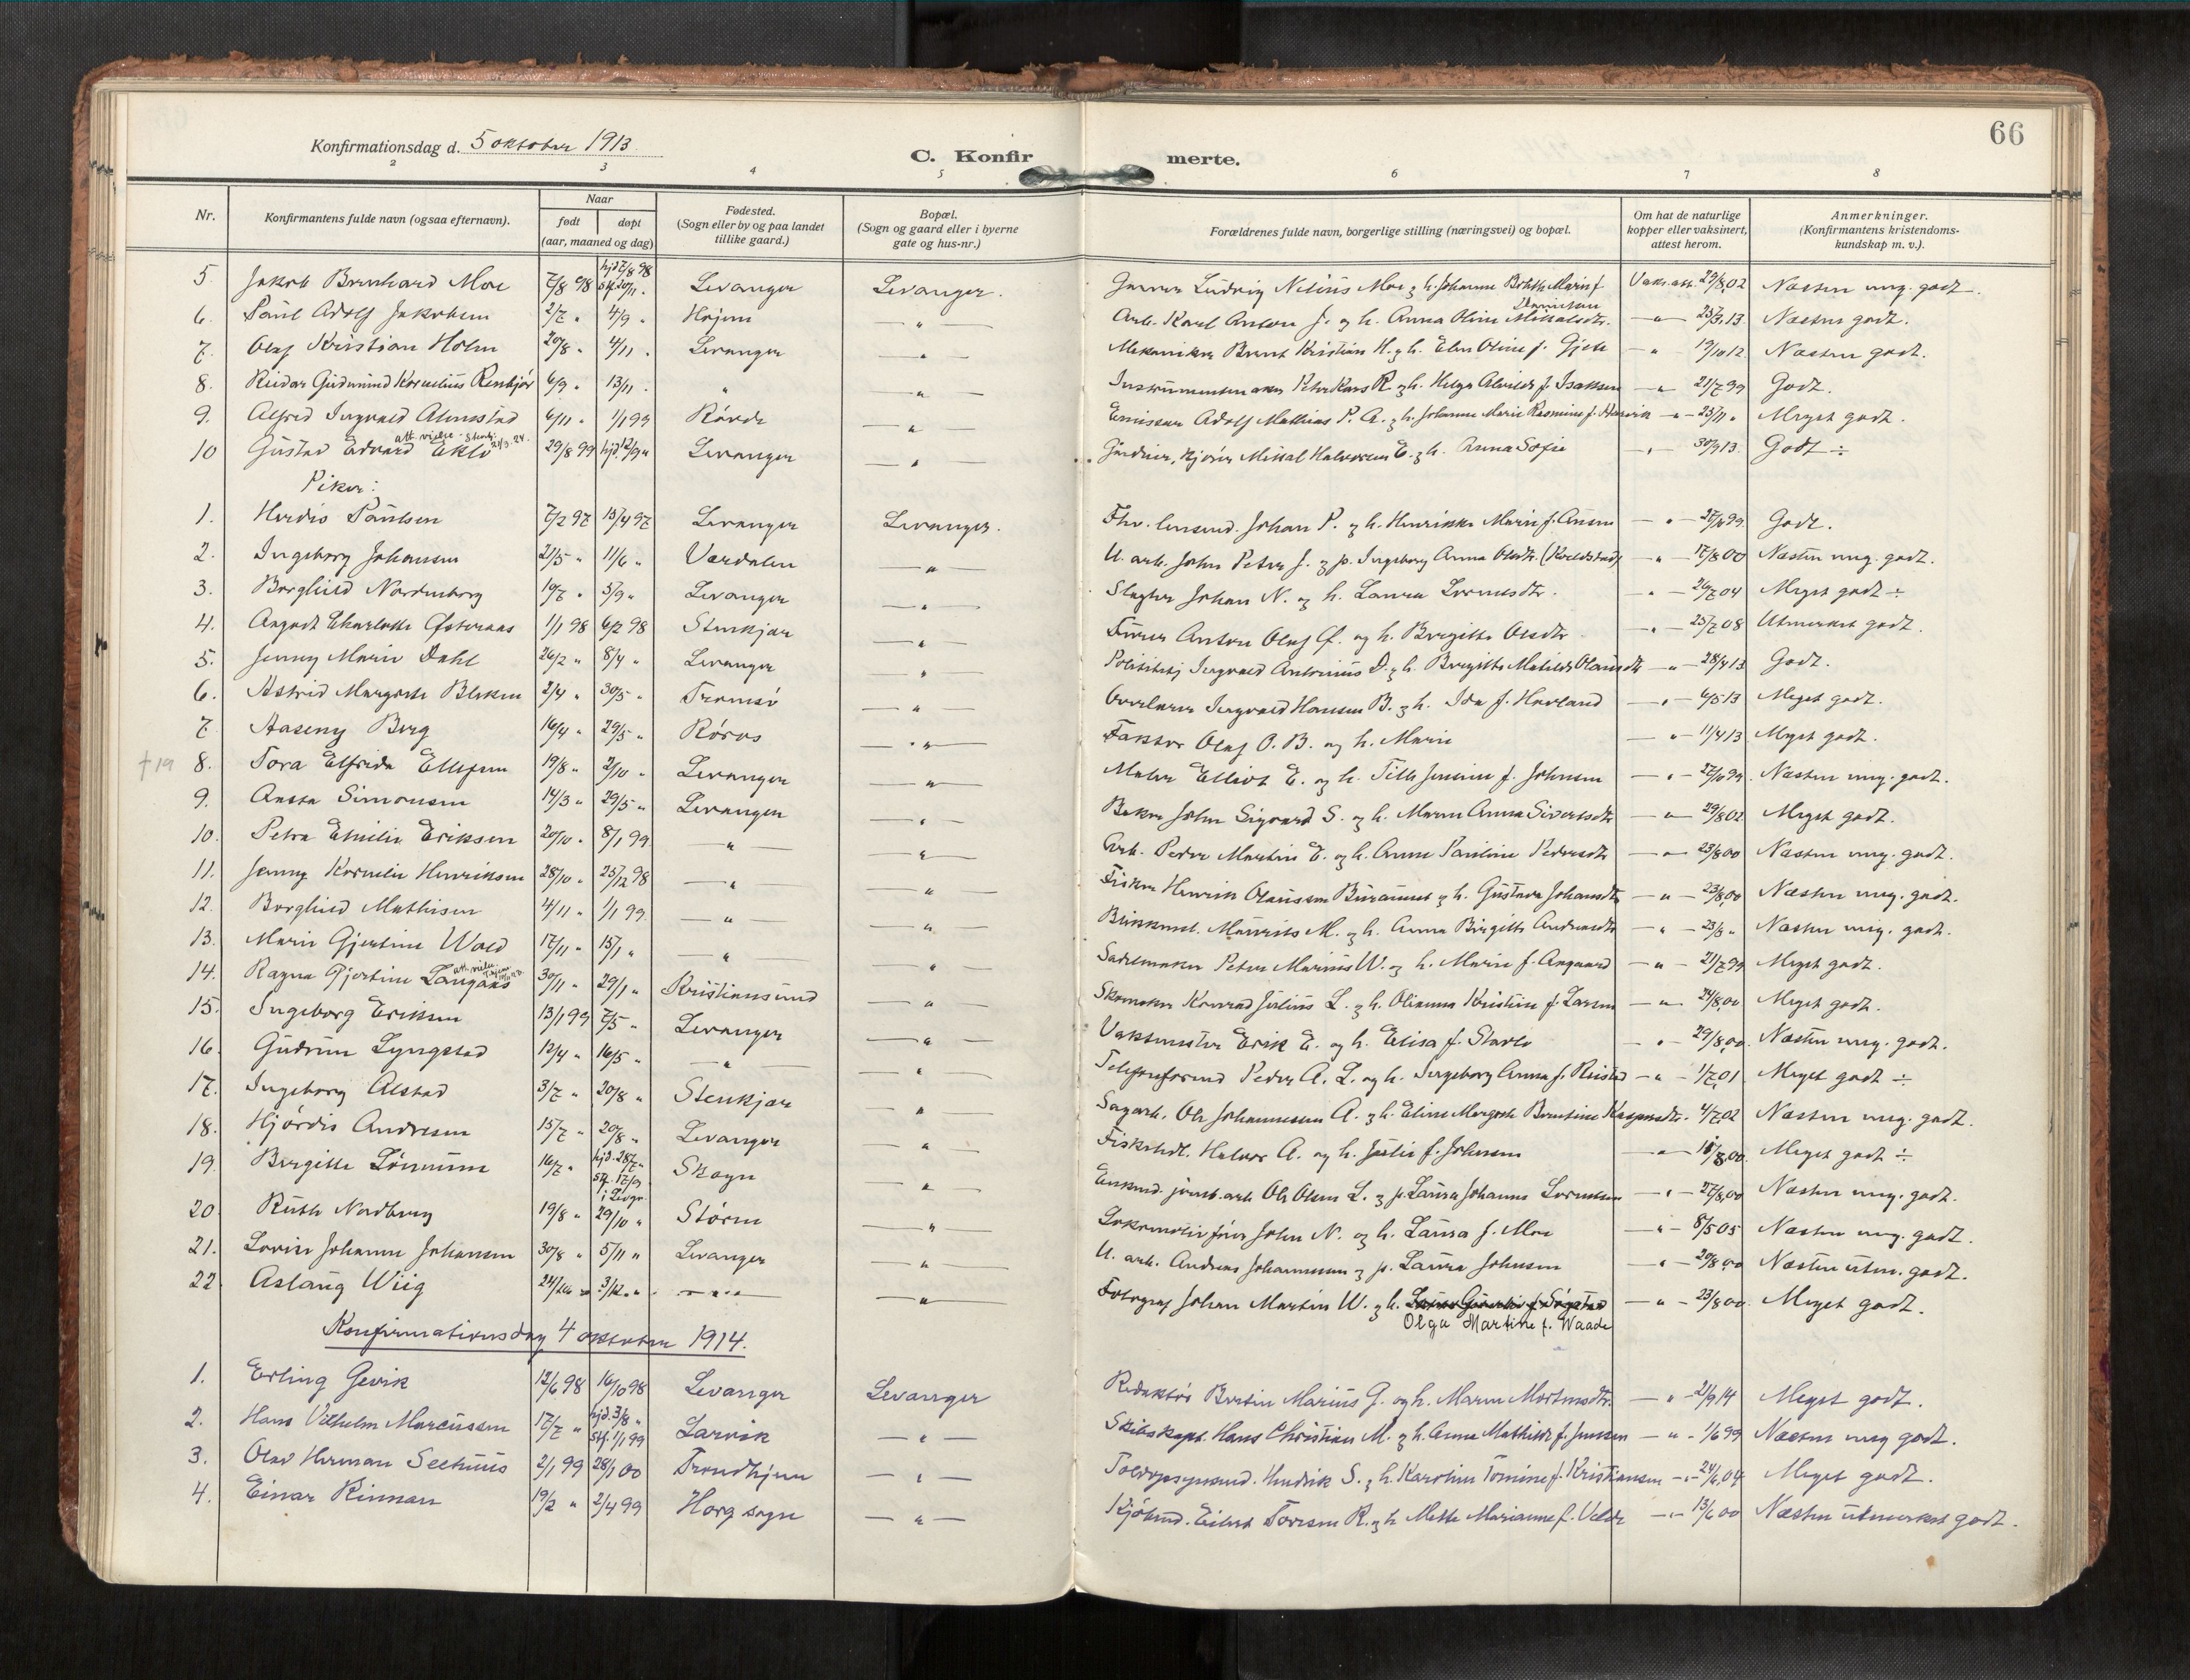 66
Konfirmationsdag d. 5 oktober 1913
C. Konfirmerte.
2 3 4 5 6 7 8
Nr. Konfirmantens fulde navn (ogsaa efternavn). Naar født døpt (aar, maaned og dag) Fødested. (Sogn eller by og paa landet tillike gaard.) Bopæl. (Sogn og gaard eller i byerne gate og hus-nr.) Forældrenes fulde navn, borgerlige stilling (næringsvei) og bopæl. Om hat de naturlige kopper eller vaksinert, attest herom. Anmerkninger. (Konfirmantens kristendomskundskap m. v.).
5 Jakob Bernhard Moe 7/8 98 hjd 7/8 98 stf. 20/11 „ Levanger Levanger. Ludvig Nilius Moe Vaks. att. 29/8 02 Næsten meg. godt.
6. Paul Adolf Jakobsen 2/7 „ 4/9 „ — „ — Arb. Karl Anton J. og h. Anna Oline — „ — 25/3 13 Næsten godt.
7. Olaf Kristian Holm 20/8 „ 4/11 „ Levanger — „ — Mekaniker Bernt Kristian H. og h. Elen Oline f. Gjele — „ 19/10 12 Næsten godt.
8. Reidar Gudmund Kornelius 6/9 „ 13/11 „ „ — „ — Instrumentmaker R. og h. Helga Alvilde f. Isaksen — „ 21/7 99 Godt.
9. Alfred Ingvald Almestad 6/11 „ 1/1 99 — „ — Emissær Adolf Mathias P. A. og h. Johanne Marie Rasmine f. — „ — 23/11 „ Meget godt.
10 Gustav Edvard Eklo att. vielse 29/8 99 hjd. 12/9 „ Levanger — „ — Mikal Halvorsen E. og h. Anna Sofie — „ — 30/9 13. Godt ÷
Piker:
1. Herdis Paulsen 7/2 97 15/4 97 Levanger Levanger. Johan P. og h. Henrikke Marie f. — „ — 99 Godt.
2. Ingeborg Johansen 21/5 „ 11/6 „ Værdalen — „ — U. arb. John Peter J. og p. Ingeborg Anna Olsdtr. — „ — 17/8 00 Næsten meg. godt.
3. Borghild Nordenborg 19/7 „ 5/9 „ Levanger — „ — Slagter Johan N. og h. Laura Lorensdtr. „ — 26/7 04 Meget godt ÷
4. Angart Charlotte Østeraas 1/1 98 6/2 98 Stenkjær — „ — Anton Olaf Ø. og h. Bergitte Olsdtr. — „ — 25/7 08 Utmerket godt.
5. Jenny Marie Dahl 26/2 „ 8/4 „ Levanger — „ — Politibtj Ingvald Antonius D. og h. Bergitte Matilde — „ — 28/4 13 Godt.
6. Astrid Margrete Bleken 2/4 „ 30/5 „ Tromsø — „ — Overlærer Ingvald Hansen B. og h. Ida f. Haveland — „ — 6/5 13 Meget godt.
7. Aaseny Berg 16/4 „ 29/5 „ Røros — „ — Faktor Olaf O. B. og h. Marie — „ — 11/4 13 Meget godt.
† 19 8. Tora Elfrida Ellefsen 19/8 „ 2/10 „ Levanger — „ — Maler Elliot E. og h. Jensine f. Johnsen — „ — 99 Næsten meg. godt.
9. Aasta Simonsen 14/3 „ 29/5 „ Levanger — „ — Baker John Sigvard S. og h. Maren Anna Sivertsdtr — „ — 29/8 02 Meget godt.
10. Petra Emilie Eriksen 20/10 „ 8/1 99 — „ — — „ — Arb. Peder Martin E. og h. Anne Pauline Pedersdtr — „ — 23/8 00 Næsten meg. godt.
11. Jenny Kornelie Henriksen 28/10 „ 25/12 98 — „ — — „ — Fisker Henrik Olaussen og h. Gustava Johansdtr — „ — 23/8 00 Næsten meg. godt.
12. Borghild Mathisen 4/11 „ 1/1 99. — „ — — „ — Maurits M. og h. Anna Birgitte Andreasdtr — „ — 23/8 „ Næsten meg. godt.
13. Marie Gjertine Wold 17/11 „ 15/1 „ — „ — — „ — Sadelmaker Peter Marinus W. og h. Marie f. Aagaard — „ — 21/7 99 Meget godt.
14. Ragna Gjertine Langaas att. vielse 30/11 „ 29/1 „ Kristiansund — „ — Skomaker Konrad Julius L. og h. Kristine f. Larsen — „ — 24/8 00 Meget godt.
15. Ingeborg Eriksen 13/1 99 7/5 „ Levanger — „ — Vaktmester Erik E. og h. Elisa f. — „ — 29/8 00. Næsten meg. godt.
16. Gudrun Lyngstad 12/4 „ 16/5 „ — „ — — „ — Peder A. L. og h. Ingeborg Anna f. — „ — 1/7 01 Meget godt ÷
17. Ingeborg Alstad 3/7 „ 20/8 „ Stenkjær — „ — Sagarb. Ole Johannessen A. og h. Eline Margrete Berntine Kaspersdtr. 4/7 02 Næsten meg. godt.
18. Hjørdis Andresen 15/7 „ 20/8 „ Levanger — „ — Halvor A. og h. Julie f. Johnsen — „ — 00. Meget godt ÷
19. Bergitte 16/7 „ hjd. 28/7 „ stf. 17/9 i Levgr. Skogn — „ — jernb. arb. Ole Olsen L. og p. Laura Johanna Lorentsen — „ — 27/8 00 Næsten meg. godt.
20 Ruth Nordberg 19/8 „ 29/10 „ Støren — „ — Lokomotivfører John N. og h. Laura f. Moe „ — 8/5 05 Næsten meg. godt.
21. Lovise Johanne Johansen 30/8 „ 5/11 „ Levanger — „ — U. arb. Andreas Johannessen og p. Laura Johnsen „ — 20/8 00 Næsten utm. godt.
22. Aslaug Wiig 24/10 „ 3/12 „ — „ — — „ — Fotograf Johan Martin W. og h. Olga Martine f. Waade — „ — 23/8 00. Meget godt.
Konfirmationsdag 4 oktober 1914.
1. Erling Gevik 12/6 98 16/10 98 Levanger Levanger Redaktør Bertin Marius G. og h. Maren Mortensdtr. — „ — 21/9 14 Meget godt.
2. Hans Vilhelm Marcussen 17/7 „ hjd. 3/8 „ stf. 1/1 99 Larvik — „ — Skibskapt. Hans Christian M. og h. Anna Mathilde f. Jensen — „ — 1/6 99 Næsten meg godt.
3. Olav Herman Seehuus 2/1 99 28/1 00 Trondhjem — „ — Hendrik S. og h. Karoline Tomine f. Kristiansen — „ — 24/6 04 Meget godt.
4. Einar Rinnan 19/2 „ 2/4 99 Horg sogn — „ — Kjøbmd. Eilert Toresen R. og h Mette Marianne f. Velde — „ — 13/6 00 Næsten utmerket godt.